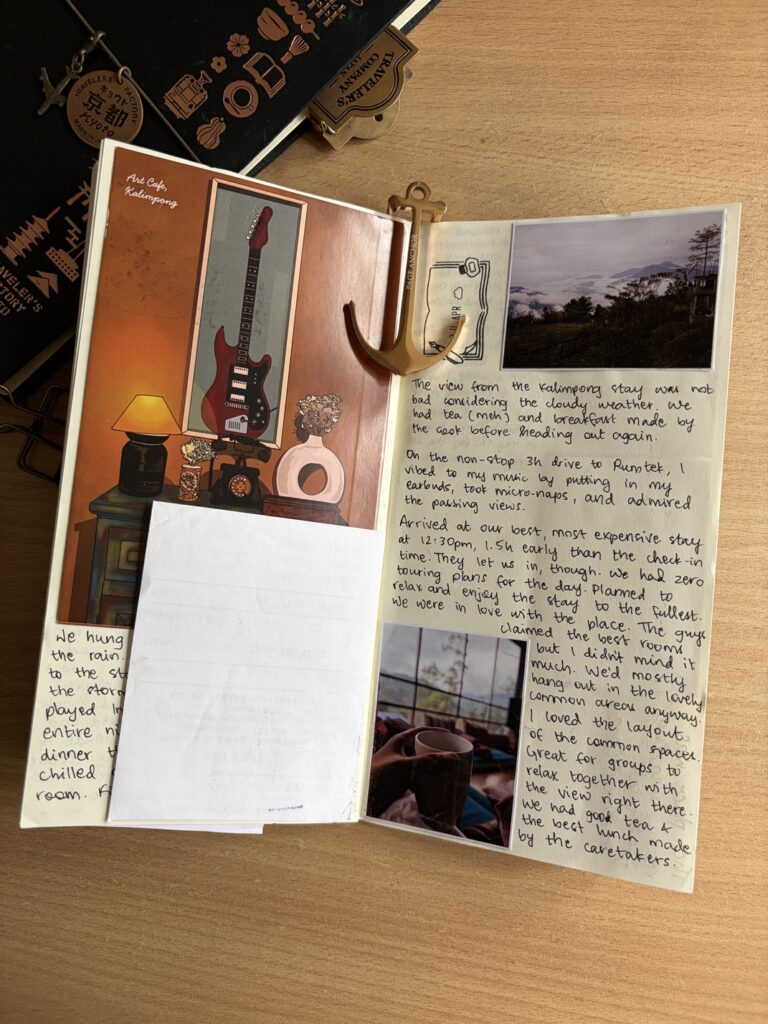 TRAVELER'S FACTORY
キョウト
京都
KYOTO
MADE IN
TRAVELER'S
COMPANY
JAPAN
TRAVELER'S
FACTORY
Art Cafe,
Kalimpong
We hung
the rain.
to the
the storm
played
entire
dinner
chilled
room.
PAGE ANCHOR
APR
The view from the Kalimpong stay was not
bad considering the cloudy weather. We
had tea (meh) and breakfast made by
the cook before heading out again.
On the non-stop 3h drive to Rumtek, I
vibed to my music by putting in my
earbuds, took micro-naps, and admired
the passing views.
Arrived at our best, most expensive stay
at 12:30pm, 1.5h early than the check-in
time. They let us in, though. We had zero
touring plans for the day. Planned to
relax and enjoy the stay to the fullest.
We were in love with the place. The guys
claimed the best rooms
but I didn't mind it
much. We'd mostly
hang out in the lovely
common areas anyway.
I loved the layout
of the common spaces.
Great for groups to
relax together with
the view right there.
We had good tea &
the best lunch made
by the caretakers.